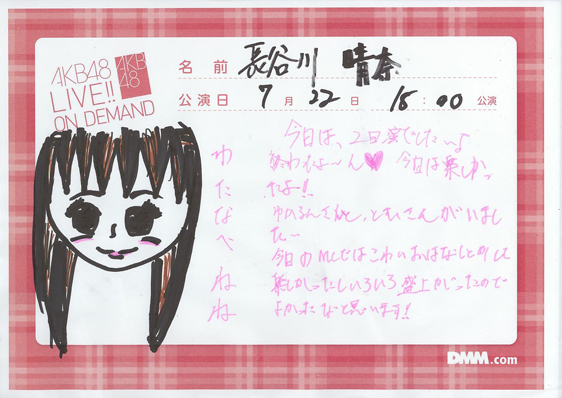 AKB48
LIVE!!
ON DEMAND
AKB
48
名前 長谷川 晴奈
公演日 7月22日 18:00公演
今日は、2回公演でした〜♪
終わったよ〜ん♥ 今日は楽しかっ
たよ!!
ゆいるんさんと、ともさんがいまし
た〜
今日のMCではこわいおはなしとかして
楽しかったしいろいろ盛上がったので
よかったなと思います!!
わたなべねね
DMM.com